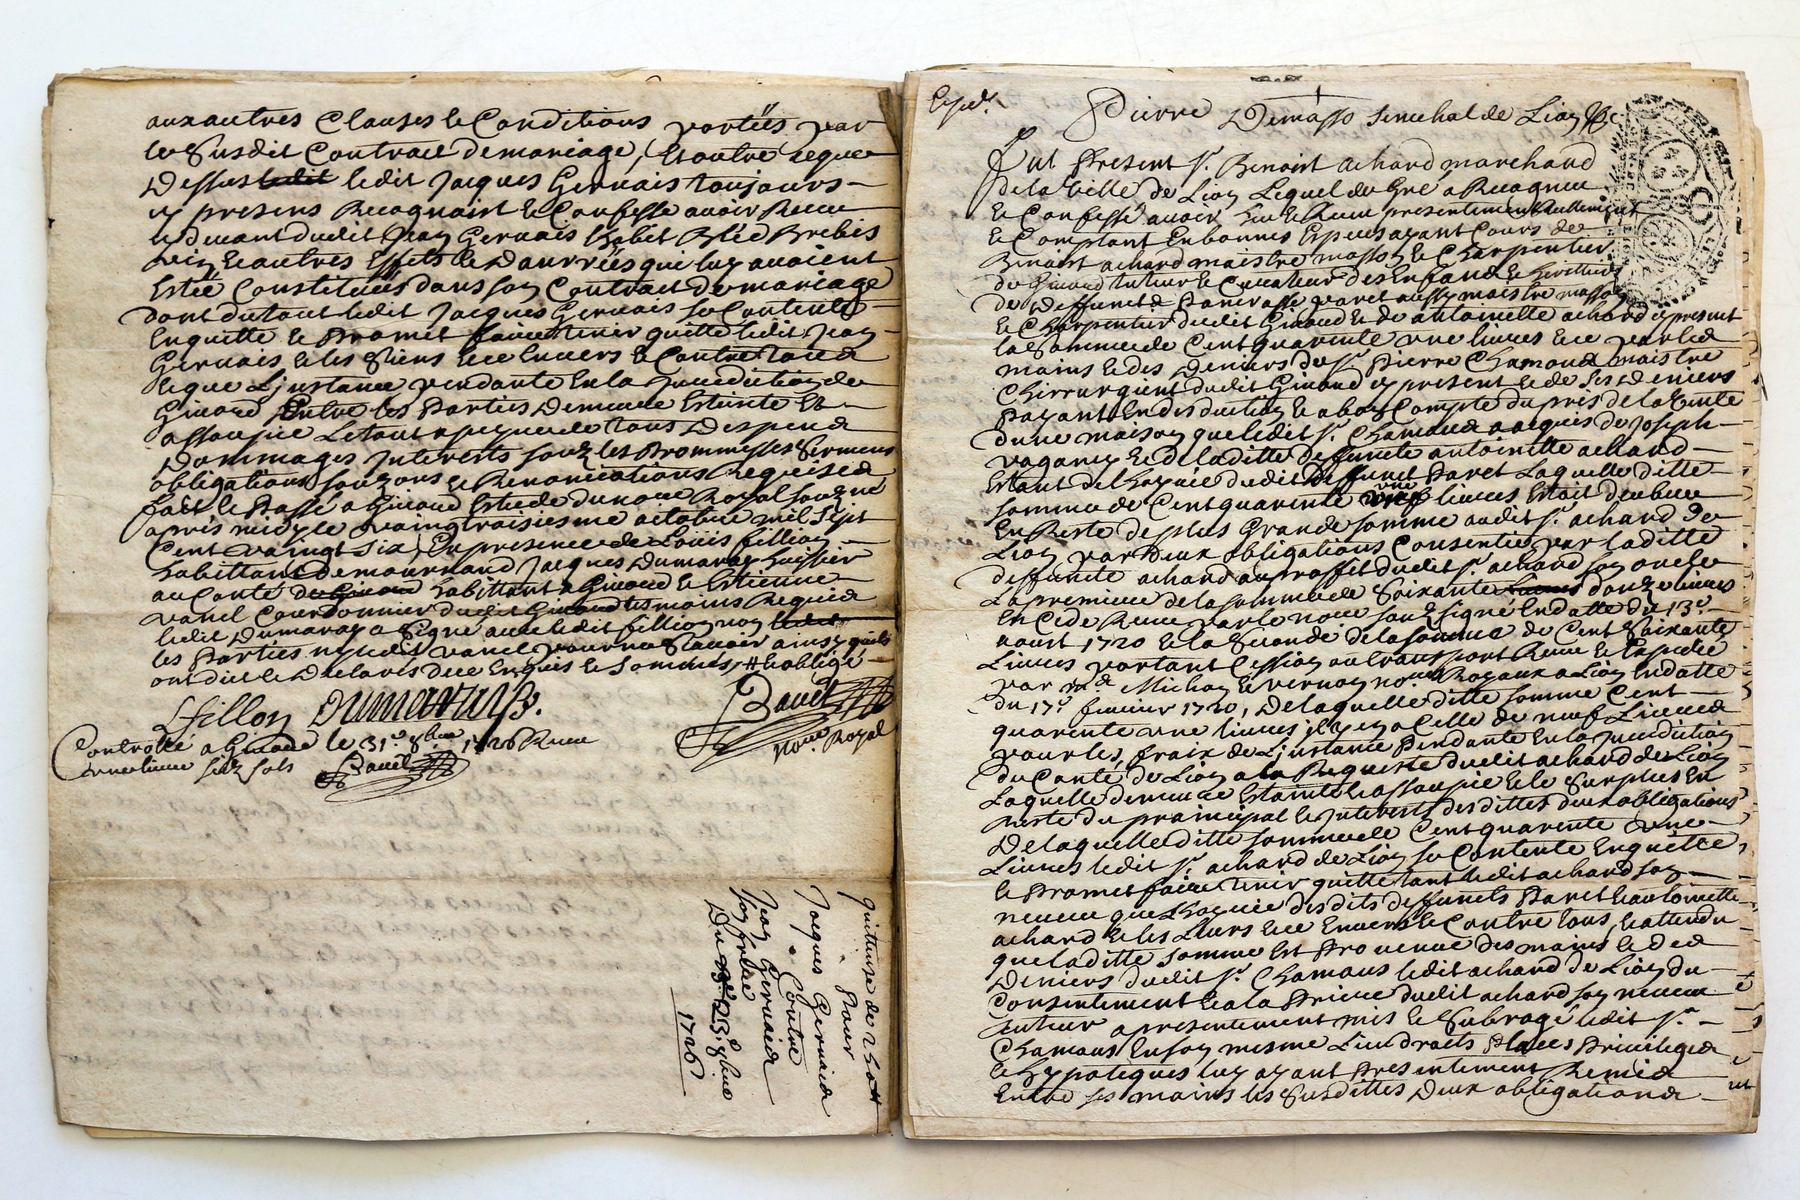 aux autres Clauses & Conditions portées par
le Susdit Contract de mariage, Et outre ce que
Dessus ledit ledit Jacques Gervais toujours
cy present Recognoist & Confesse avoir Receu
cy devant dudit Jean Gervais habit Bled Brebis
vin & autres Effets & Danrrées qui luy avoient
Esté Constitués dans son Contract de mariage
dont du tout ledit Jacques Gervais se Contente
Enquitte & Promet faire tenir quitte ledit Jean
Gervais & les Siens & ce Envers & Contre tous
& que L'instance pendante En la Juridiction de
Givord Entre les Parties Demeure Esteinte Et
assoupie Le tout a peyne de tous Despens
Dommages Interests souz les Promesses Sermens
obligations souzons & Renonciations Requises
fait & Passé a Givord Estude du nore Royal souzné
apres midy le vaingtroisiesme octobre mil Sept
Cent vaingt six, En presence de Louis fillion
habittant demeurand Jacques Dumaray huissier
au Conté de Givord habittant a Givord & Estienne
vanel Courdonnier dudit Givord tesmoins Requis
ledit Dumaray a Signé avec ledit fillion non ledit
les Parties ny ledit vanel pour ne Scavoir ainsy quils
ont dit & Declaré de ce Enquis & Sommés, # & obligé
L fillon Dumaray
Bauit
nore Royal
Controllé a Givord le 31e 8bre 1726 Receu
une livre six sols Bauit
quittance de
Pour
Jacques Gervais
Contre
Jean Gervais
son frere
Du 23e 8bre
1726
Exped.
Pierre Demasso Senechal de Lion &c
Fut Present Sr. Benoist achard marchand
de la Ville de Lion Lequel de Gré a Recognu
& Confessé avoir Eu & Receu presentement Reellement
& Comptant En bonnes Especes ayant Cours de
Benoist achard maistre masson & Charpentier
de Givord tuteur & Curateur des Enfans & heretiers
de Deffunct Pancrasse paret aussy maistre masson
& Charpentier dudit Givord & de antoinette achard cy present
la Somme de Cent quarente une livres & ce par les
mains & des Deniers du Sr. Pierre Chamous maistre
Chirurgient dudit Givord cy present & de ses Deniers
Payant En desduction & a bon Compte du pris de la Vente
dune maison que ledit Sr. Chamous a acquis de Joseph
vaganey & de laditte deffuncte antoinette achard
Estant de l'hoyrie dudit deffunct Paret Laquelle ditte
somme de Cent quarente une livres Estoit deubue
En Reste de plus Grande somme audit Sr. achard de
Lion par deux obligations Consenties par laditte
deffuncte achard au proffit dudit Sr. achard son oncle
La premiere de la somme de Soixante livres douze livres
En Cede Receu par le nore souzsigné En datte du 13e
aoust 1720 & la Segonde de la somme de Cent Soixante
Livres portant Cession au transport Receu & Expedié
par Me Michon & vernon nores Royaux a Lion En datte
du 17e fevrier 1720, De laquelle ditte somme Cent
quarente une livres il y en a Celle de neuf Livres
pour les fraix de L'instance Pendante En la Juridiction
du Conté de Lion a la Requeste dudit achard de Lion
Laquelle demeure Estainte & assoupie & le Surplus En
reste du principal & Interests desdittes deux obligations
De laquelle ditte somme de Cent quarente une
Livres ledit Sr. achard de Lion se Contente Enquitte
& Promet faire tenir quitte tant ledit achard son
neveu que L'hoyrie desdits deffuncts Paret & antoinette
achard & les Leurs & ce Envers & Contre tous, & attendu
que laditte somme Est Provenue des mains & des
Deniers dudit Sr. Chamous ledit achard de Lion du
Consentement & a la Priere dudit achard son neveu
tuteur a presentement mis & Subrogé ledit Sr.
Chamous En son mesme Lieu droits Places Privileges
& hypoteques luy ayant Presentement Remis
Entre ses mains les Susdittes Deux obligations